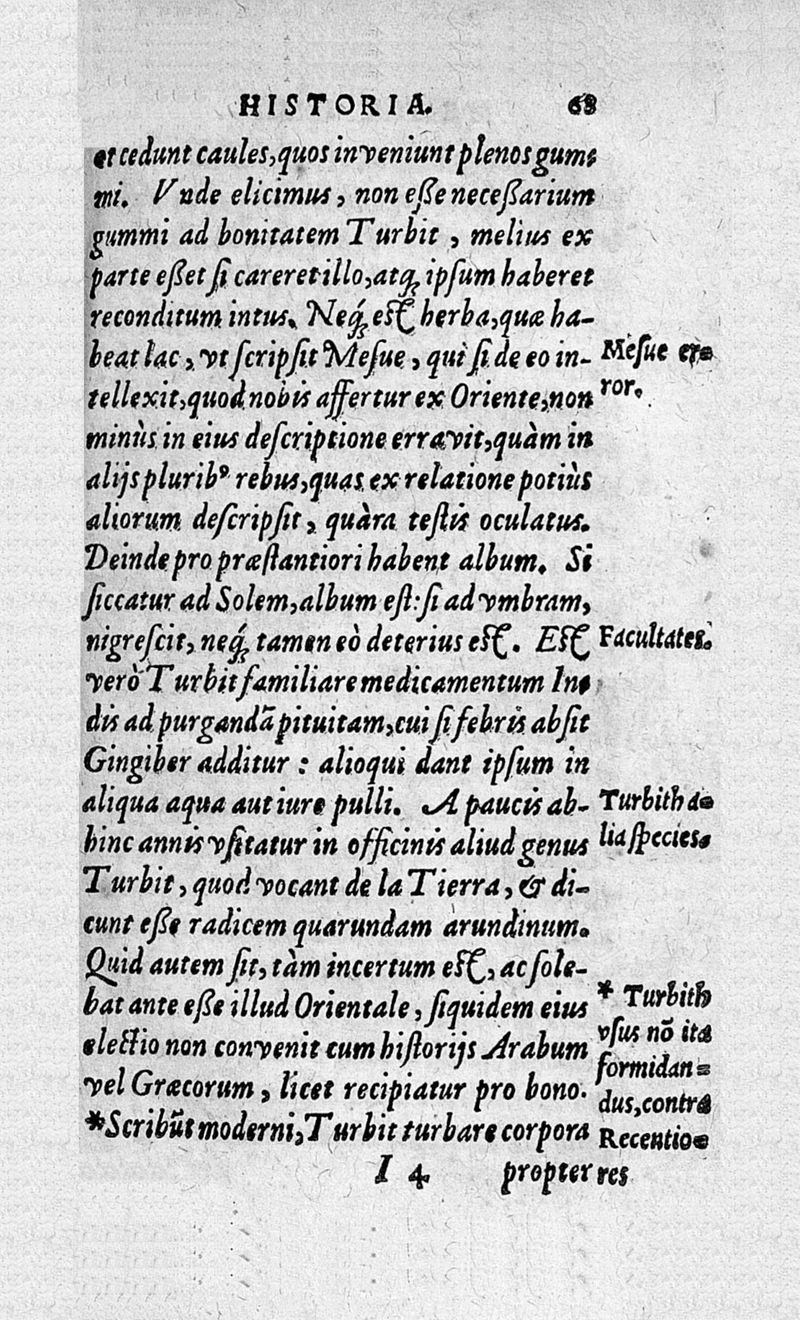 HISTORIA. 68
et cedunt caules, quos inveniunt plenos gum-
mi. Vnde elicimus, non eße neceßarium
gummi ad bonitatem Turbit, melius ex
parte eßet ſi careret illo, atq́ꝫ ipſum haberet
reconditum intus. Neq́ꝫ est herba, quæ ha-
beat lac, vt ſcripſit Meſue, qui ſi de eo in-
tellexit, quod nobis affertur ex Oriente, non
minùs in eius deſcriptione erravit, quàm in
alijs pluribꝰ rebus, quas ex relatione potiùs
aliorum deſcripſit, quàra teſtis oculatus.
Deinde pro præſtantiori habent album. Si
ſiccatur ad Solem, album eſt: ſi ad vmbram,
nigreſcit, neq́ꝫ tamen eò deterius est. Est
verò Turbit familiare medicamentum In-
dis ad purgandā pituitam, cui ſi febris abſit
Gingiber additur: alioqui dant ipſum in
aliqua aqua aut iure pulli. A paucis ab-
hinc annis vſitatur in officinis aliud genus
Turbit, quod vocant de la Tierra, & di-
cunt eße radicem quarundam arundinum.
Quid autem ſit, tàm incertum est, ac ſole-
bat ante eße illud Orientale, ſiquidem eius
electio non convenit cum hiſtorijs Arabum
vel Græcorum, licet recipiatur pro bono.
*Scribūt moderni, Turbit turbare corpora
I 4 propter
Meſue er-
ror.
Facultates.
Turbith a-
lia ſpecies.
* Turbith
vſus nō ita
formidan-
dus, contra
Recentio-
res